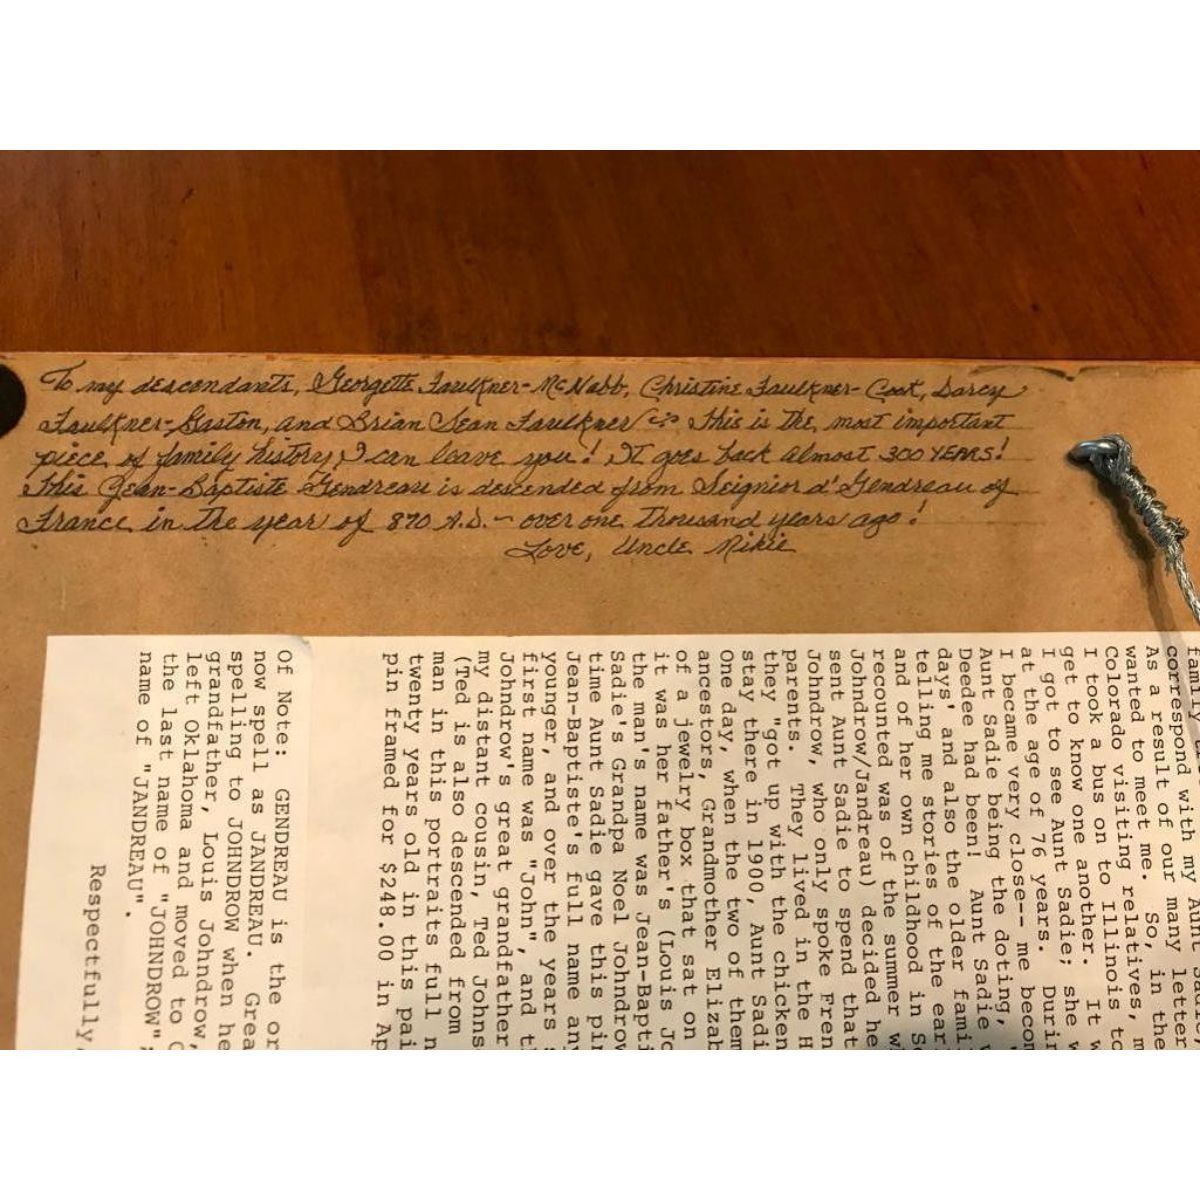 To my descendants, Georgette Faulkner-McNabb, Christine Faulkner-Coat, Darcy
Faulkner-Gaston, and Brian Sean Faulkner ~ This is the most important
piece of family history I can leave you! It goes back almost 300 YEARS!
This Jean-Baptiste Gendreau is descended from Seignior d'Gendreau of
France in the year of 870 A.D. - over one thousand years ago!
Love, Uncle Mikie
family
correspond with my Aunt Sadie,
As a result of our many letter
wanted to meet me. So, in the
Colorado visiting relatives, m
I took a bus on to Illinois to
get to know one another. It w
I got to see Aunt Sadie; she w
at the age of 76 years. Durin
I became very close-- me becom
Aunt Sadie being the doting,
Deedee had been! Aunt Sadie w
days' and also the older famil
telling me stories of the earl
and of her own childhood in So
recounted was of the summer wh
Johndrow/Jandreau) decided he
sent Aunt Sadie to spend that
Johndrow, who only spoke Fren
parents. They lived in the H
they "got up with the chicken
stay there in 1900, Aunt Sadi
One day, when the two of them
ancestors, Grandmother Elizab
of a jewelry box that sat on
it was her father's (Louis Jo
the man's name was Jean-Bapti
Sadie's Grandpa Noel Johndrow
time Aunt Sadie gave this pin
Jean-Baptiste's full name any
younger, and over the years
first name was "John", and t
Johndrow's great grandfather
my distant cousin, Ted Johns
(Ted is also descended from
man in this portraits full n
twenty years old in this pai
pin framed for $248.00 in Ap
Of Note: GENDREAU is the or
now spell as JANDREAU. Grea
spelling to JOHNDROW when he
grandfather, Louis Johndrow,
left Oklahoma and moved to C
the last name of "JOHNDROW";
name of "JANDREAU".
Respectfully,